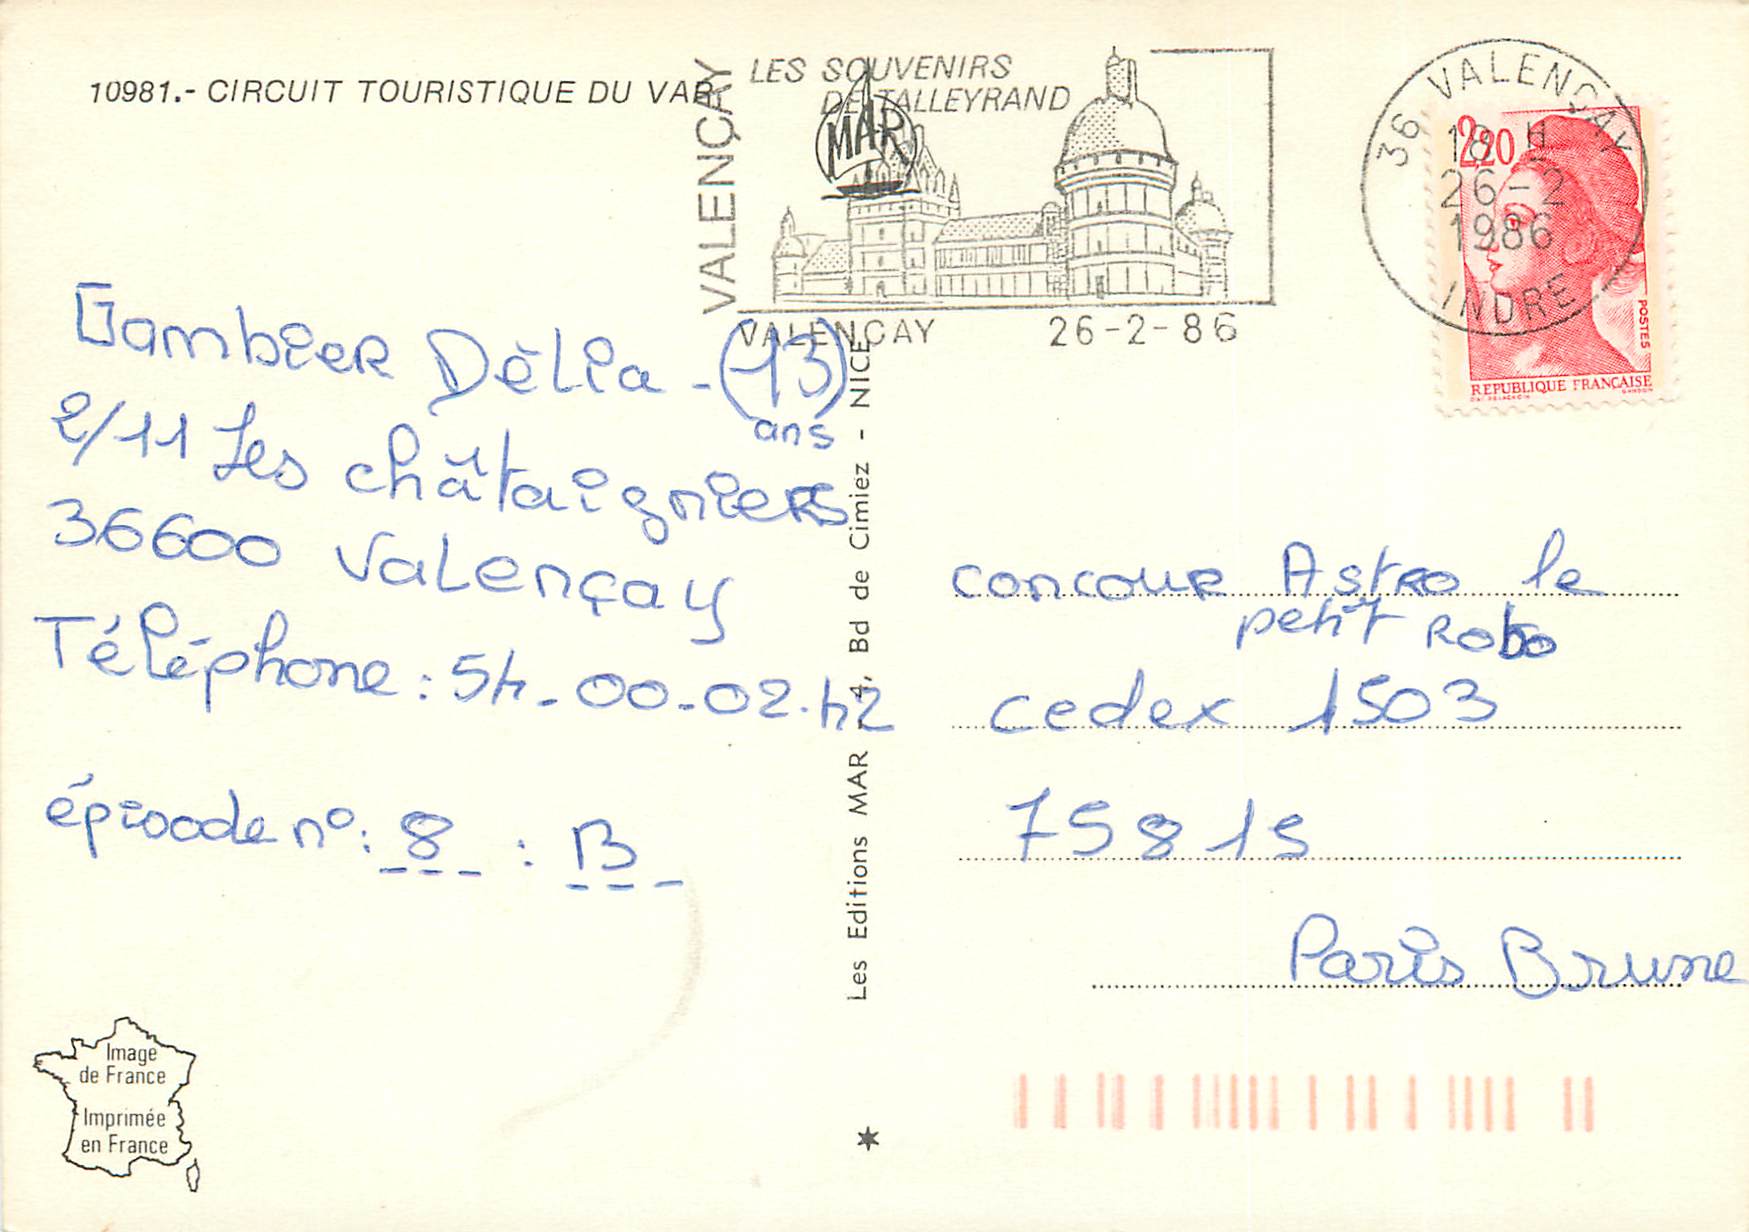 10981.- CIRCUIT TOURISTIQUE DU VAR
VALENÇAY
LES SOUVENIRS
DE TALLEYRAND
MAR
VALENÇAY 26-2-86
36 VALENÇAY
18 H
26-2
1986
INDRE
2,20
POSTES
REPUBLIQUE FRANÇAISE
Gambier Dèlia - (13)
ans
2/11 Les châtaigniers
36600 Valençay
Téléphone : 54-00-02.42
épisode n°: 8 : B
Les Editions MAR - 4, Bd de Cimiez - NICE
concour Astro le
petit Robo
cedex 1503
75815
Paris Brune
Image
de France
Imprimée
en France